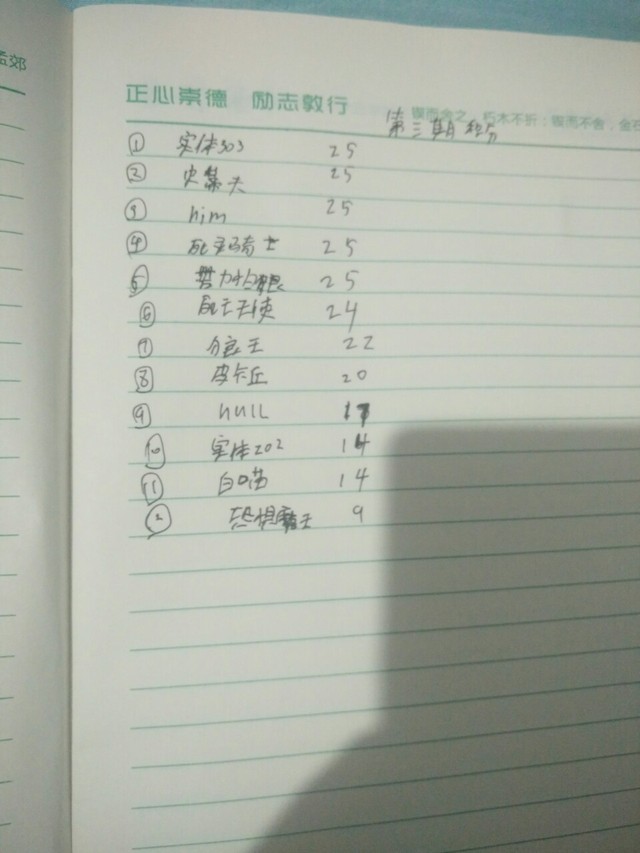 孟郊
正心崇德 励志敦行
锲而舍之，朽木不折；锲而不舍，金石
第三期积分
① 实体303 25
② 史蒂夫 25
③ him 25
④ 死灵骑士 25
⑤ 努力 25
⑥ 死亡天使 24
⑦ 狼王 22
⑧ 皮卡丘 20
⑨ null 17
⑩ 实体202 14
⑪ 白喵 14
⑫ 恐惧霸王 9